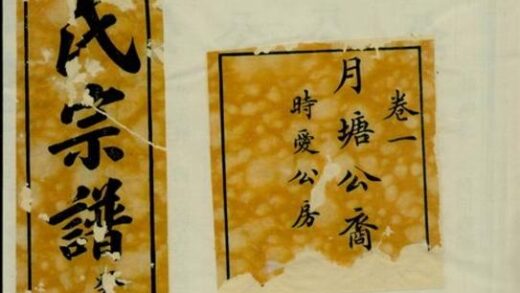 氏宗譜
卷一
月塘公裔
時愛公房